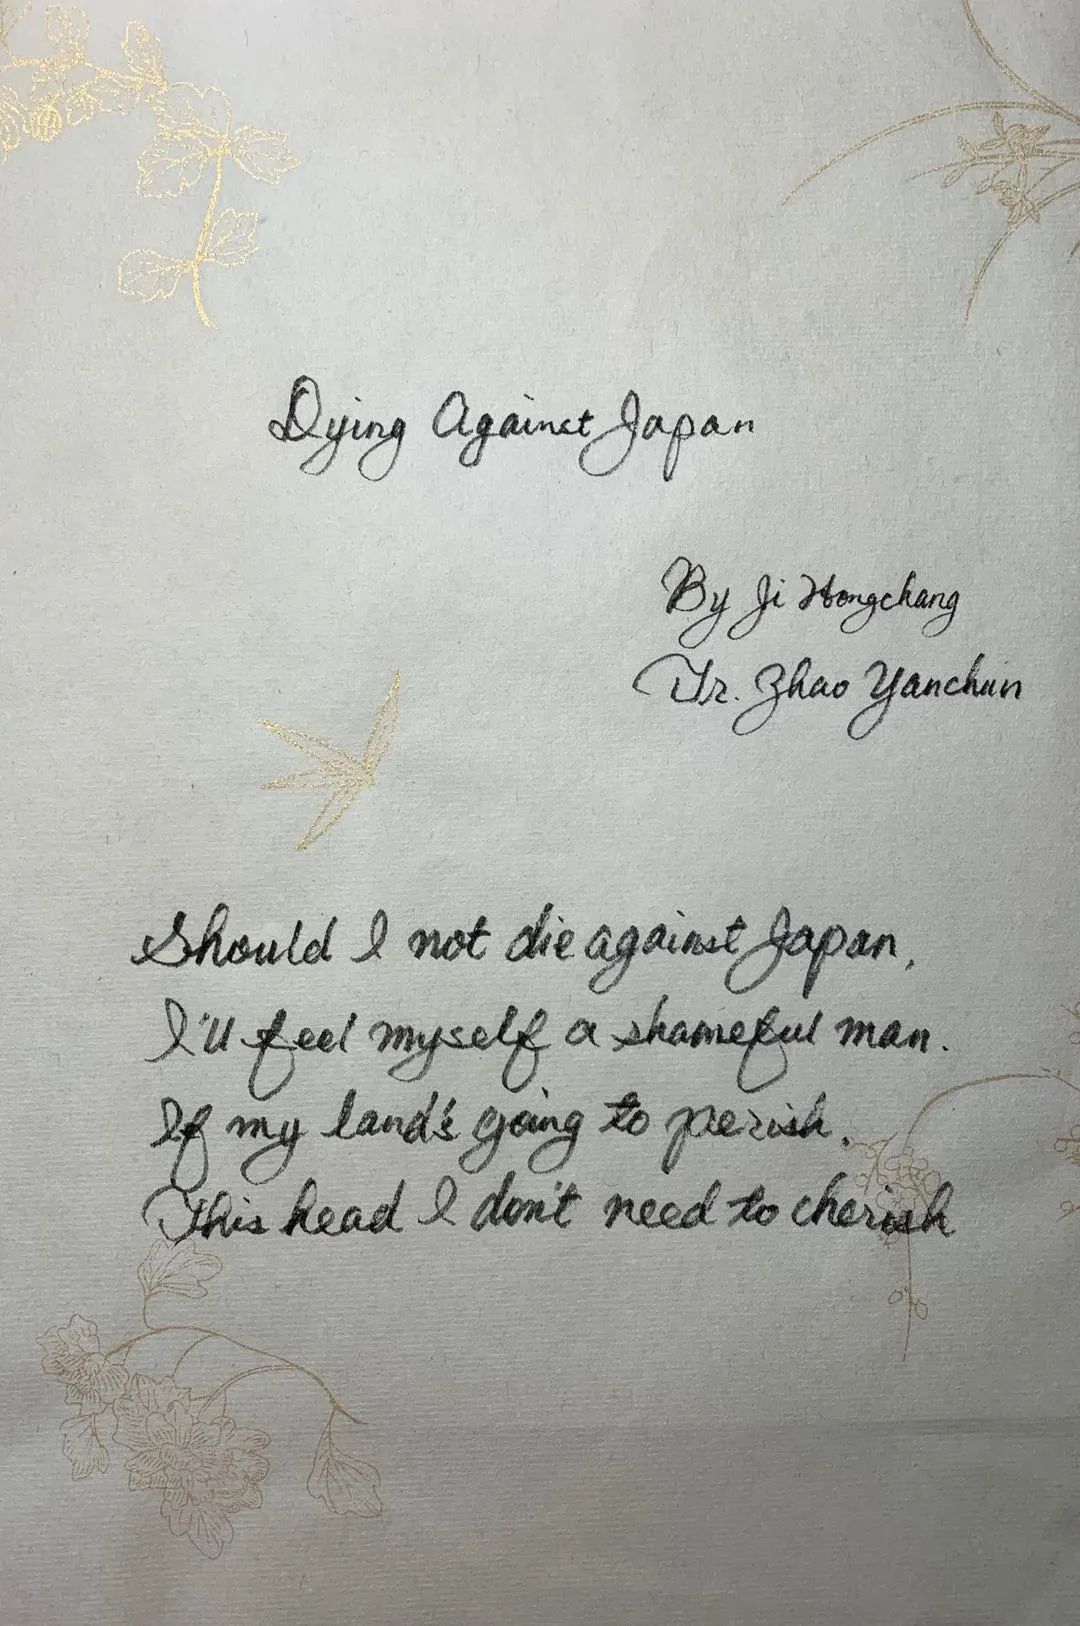 Dying Against Japan
By Ji Hongchang
Tr. Zhao Yanchun
Should I not die against Japan,
I'll feel myself a shameful man.
If my land's going to perish,
This head I don't need to cherish